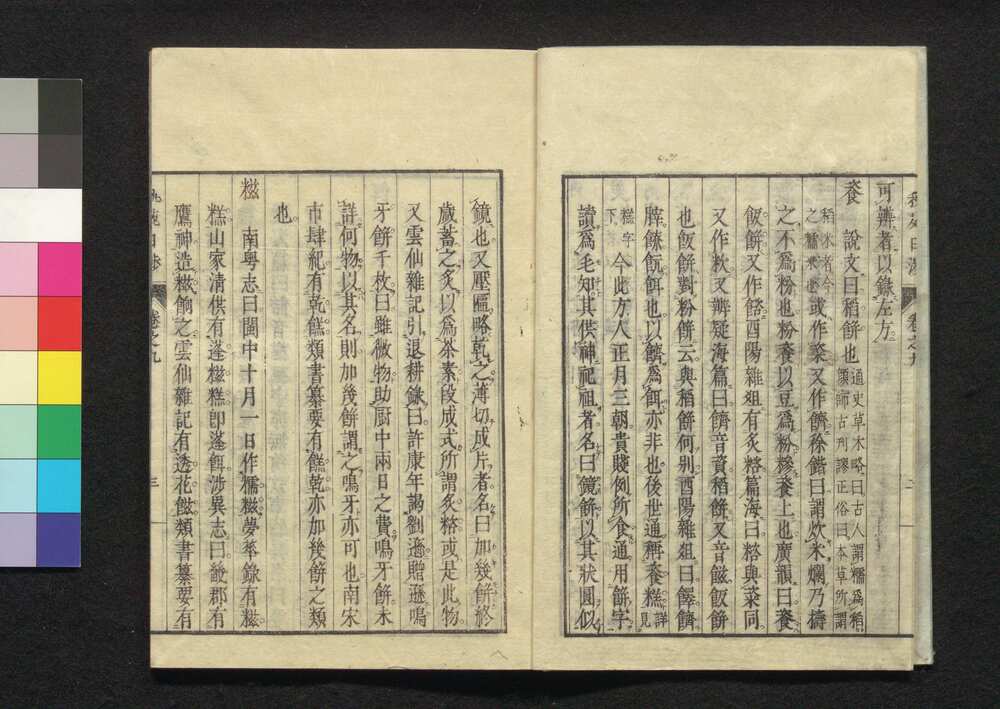 可辨者以錄左方
餈 說文曰稻餅也通史草木略曰古人謂糯爲稻
顏師古刊謬正俗曰本草所謂
稻米者今
之糯米也或作粢又作餹徐鍇曰謂炊米爛乃擣
之不爲粉也粉餈以豆爲粉糝餈上也廣韻曰餈
飯餅又作餎酉陽雜俎有炙糌篇海曰糌與粢同
又作𥻓又辨疑海篇曰餹音資稻餅又音飯餅
也飯餅對粉餅云與稻餅何別酉陽雜俎曰
餌也以爲餌亦非也後世通稱餈糕詳
見
糕字
下 今此方人正月三朝貴賤例所食通用餅字
讀爲毛知其供神祀祖者名曰鏡餅以其狀圓似
鏡也又壓匾略乾之薄切成片者名曰加幾餅終
歲蓄之炙以爲茶素段成式所謂炙糌或是此物
又雲仙雜記引退耕錄曰許康年謁劉遜贈遜鳴
牙餅千枚曰雖微物助廚中兩日之費鳴牙餅未
詳何物以其名則加幾餅謂之鳴牙亦可也南宋
市肆紀有乾糕類書纂要有糕乾亦加幾餅之類
也
糍 南粤志曰閩中十月一日作糯糍夢粱錄有糍
糕山家清供有蓬糍糕卽蓬餌涉異志曰歙郡有
鷹神造糍餉之雲仙雜記有透花糍類書纂要有
卷之九
三
卷之九